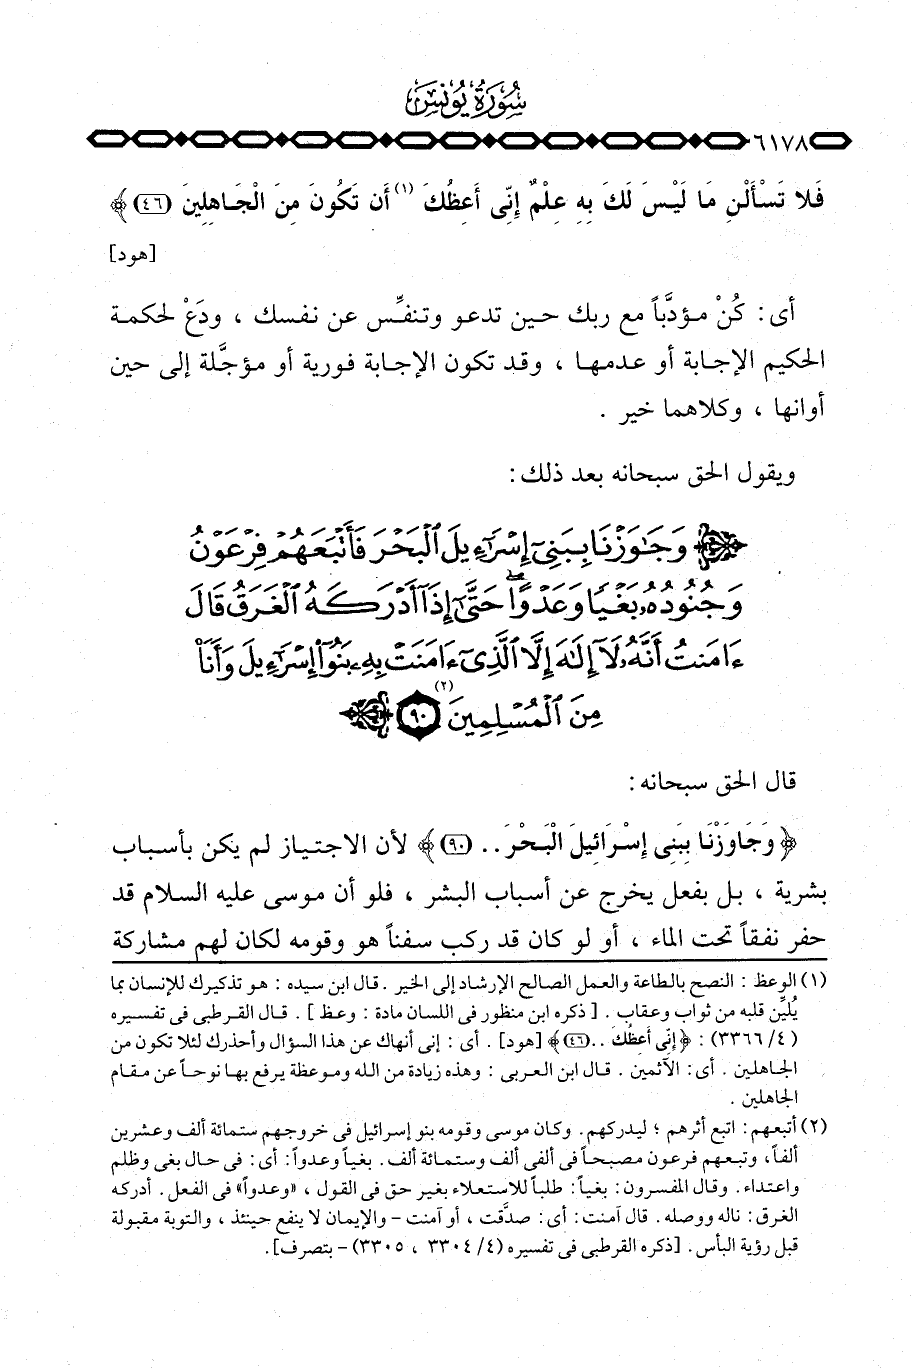 سُورَةُ يُونُسَ
٦١٧٨
فَلا تَسْأَلْنِ مَا لَيْسَ لَكَ بِهِ عِلْمٌ إِنِّى أَعِظُكَ (١) أَن تَكُونَ مِنَ الْجَاهِلِينَ (٤٦) ﴾
[هود]
أى : كُنْ مؤدَّباً مع ربك حين تدعو وتنفِّس عن نفسك ، ودَعْ لحكمة
الحكيم الإجابة أو عدمها ، وقد تكون الإجابة فورية أو مؤجَّلة إلى حين
أوانها ، وكلاهما خير .
ويقول الحق سبحانه بعد ذلك :
﴿ وَجَٰوَزْنَا بِبَنِىٓ إِسْرَٰٓءِيلَ ٱلْبَحْرَ فَأَتْبَعَهُمْ فِرْعَوْنُ
وَجُنُودُهُۥ بَغْيًا وَعَدْوًا ۖ حَتَّىٰٓ إِذَآ أَدْرَكَهُ ٱلْغَرَقُ قَالَ
ءَامَنتُ أَنَّهُۥ لَآ إِلَٰهَ إِلَّا ٱلَّذِىٓ ءَامَنَتْ بِهِۦ بَنُوٓا۟ إِسْرَٰٓءِيلَ وَأَنَا۠
مِنَ ٱلْمُسْلِمِينَ (٢) ٩٠ ﴾
قال الحق سبحانه :
﴿ وَجَاوَزْنَا بِبَنِى إِسْرَائِيلَ الْبَحْرَ .. (٩٠) ﴾ لأن الاجتياز لم يكن بأسباب
بشرية ، بل بفعل يخرج عن أسباب البشر ، فلو أن موسى عليه السلام قد
حفر نفقاً تحت الماء ، أو لو كان قد ركب سفناً هو وقومه لكان لهم مشاركة
(١) الوعظ : النصح بالطاعة والعمل الصالح الإرشاد إلى الخير . قال ابن سيده : هو تذكيرك للإنسان بما
يُليِّن قلبه من ثواب وعقاب . [ ذكره ابن منظور فى اللسان مادة : وعظ ] . قال القرطبى فى تفسيره
(٤/ ٣٣٦٦) : ﴿ إِنِّى أَعِظُكَ .. (٤٦) ﴾ [هود] . أى : إنى أنهاك عن هذا السؤال وأحذرك لئلا تكون من
الجاهلين . أى : الآثمين . قال ابن العربى : وهذه زيادة من الله وموعظة يرفع بها نوحاً عن مقام
الجاهلين .
(٢) أتبعهم : اتبع أثرهم ؛ ليدركهم . وكان موسى وقومه بنو إسرائيل فى خروجهم ستمائة ألف وعشرين
ألفاً، وتبعهم فرعون مصبحاً فى ألفى ألف وستمائة ألف. بغياً وعدواً : أى : فى حال بغى وظلم
واعتداء . وقال المفسرون : بغياً : طلباً للاستعلاء بغير حق فى القول ، «وعدواً» فى الفعل . أدركه
الغرق : ناله ووصله . قال آمنت : أى : صدَّقت ، أو آمنت - والإيمان لا ينفع حينئذ ، والتوبة مقبولة
قبل رؤية البأس . [ذكره القرطبى فى تفسيره (٤/ ٣٣٠٤ ، ٣٣٠٥) - بتصرف].